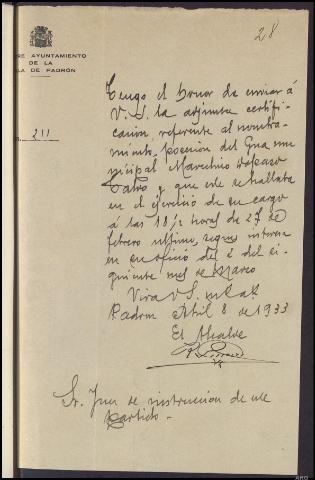 28
RE AYUNTAMIENTO
DE LA
LA DE PADRÓN
211
Tengo el honor de enviar á
V. S. la adjunta certifi-
cación, referente al nombra-
miento, posesión del Gua
nicipal Marcelino
Calvo y que este se hallaba
en el ejercicio de su cargo
á las 18 1/2 horas de 27 de
febrero ultimo, segun interesa
en su oficio del 2 del si-
guiente mes de Marzo
Viva V.S. m. a.
Padron Abril 8 de 1933
El Alcalde
Sr. Juez de instruccion de este
Partido.-